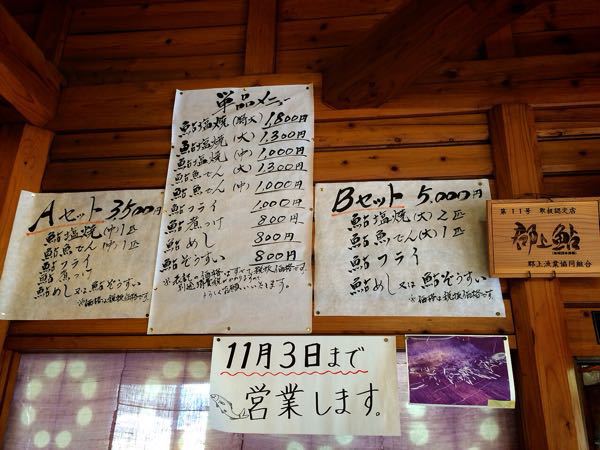 単品メニュー
鮎塩焼(特大) 1,800円
鮎塩焼(大) 1,300円
鮎塩焼(中) 1,000円
鮎魚でん(大) 1,300円
鮎魚でん(中) 1,000円
鮎フライ 1,000円
鮎煮つけ 800円
鮎めし 800円
鮎ぞうすい 800円
Aセット 3500円
鮎塩焼(中)1匹
鮎魚でん(中)1匹
鮎フライ
鮎煮つけ
鮎めし又は鮎ぞうすい
※価格は税抜価格です。
Bセット 5,000円
鮎塩焼(大)2匹
鮎魚でん(大)1匹
鮎フライ
鮎めし又は鮎ぞうすい
※価格は税抜価格です。
第11号 取扱認定店
郡上鮎
郡上漁業協同組合
11月3日まで
営業します。